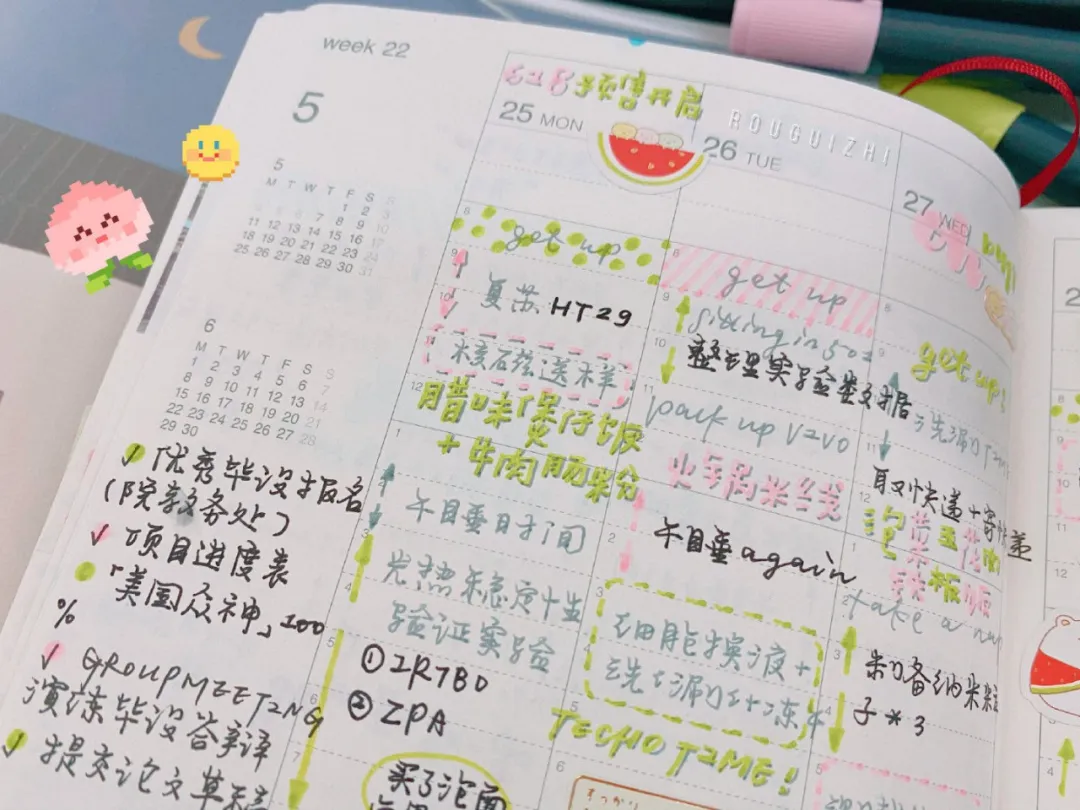 week 22
5
5
M T W T F S S
1 2 3
4 5 6 7 8 9 10
11 12 13 14 15 16 17
18 19 20 21 22 23 24
25 26 27 28 29 30 31
6
M T W T F S S
1 2 3 4 5 6 7
8 9 10 11 12 13 14
15 16 17 18 19 20 21
22 23 24 25 26 27 28
29 30
优秀毕设报名
(院教务处)
项目进度表
「美国众神」100
%
GROUP MEETING
演练毕设答辩
提交论文草稿
618预售开启
25 MON
8
get up
9
复苏 HT29
10
11
12
腊味煲仔饭
+牛肉肠粉
1
午睡时间
3
光热稳定性
4
验证实验
5
① IR780
② ZPA
6
买了泡面
ROUGUIZHI
26 TUE
8
get up
9
sitting in 502
10
整理实验数据
11
pack up vivo
火锅米线
2
午睡again
3
细胞换液+
4
5
TECHO TIME!
6
27 WED
8
get up!
9
10
11
取快递+寄快递
12
1
铁板饭
2
take a
3
制备纳米粒
子*3
4
5
8
9
10
11
12
4